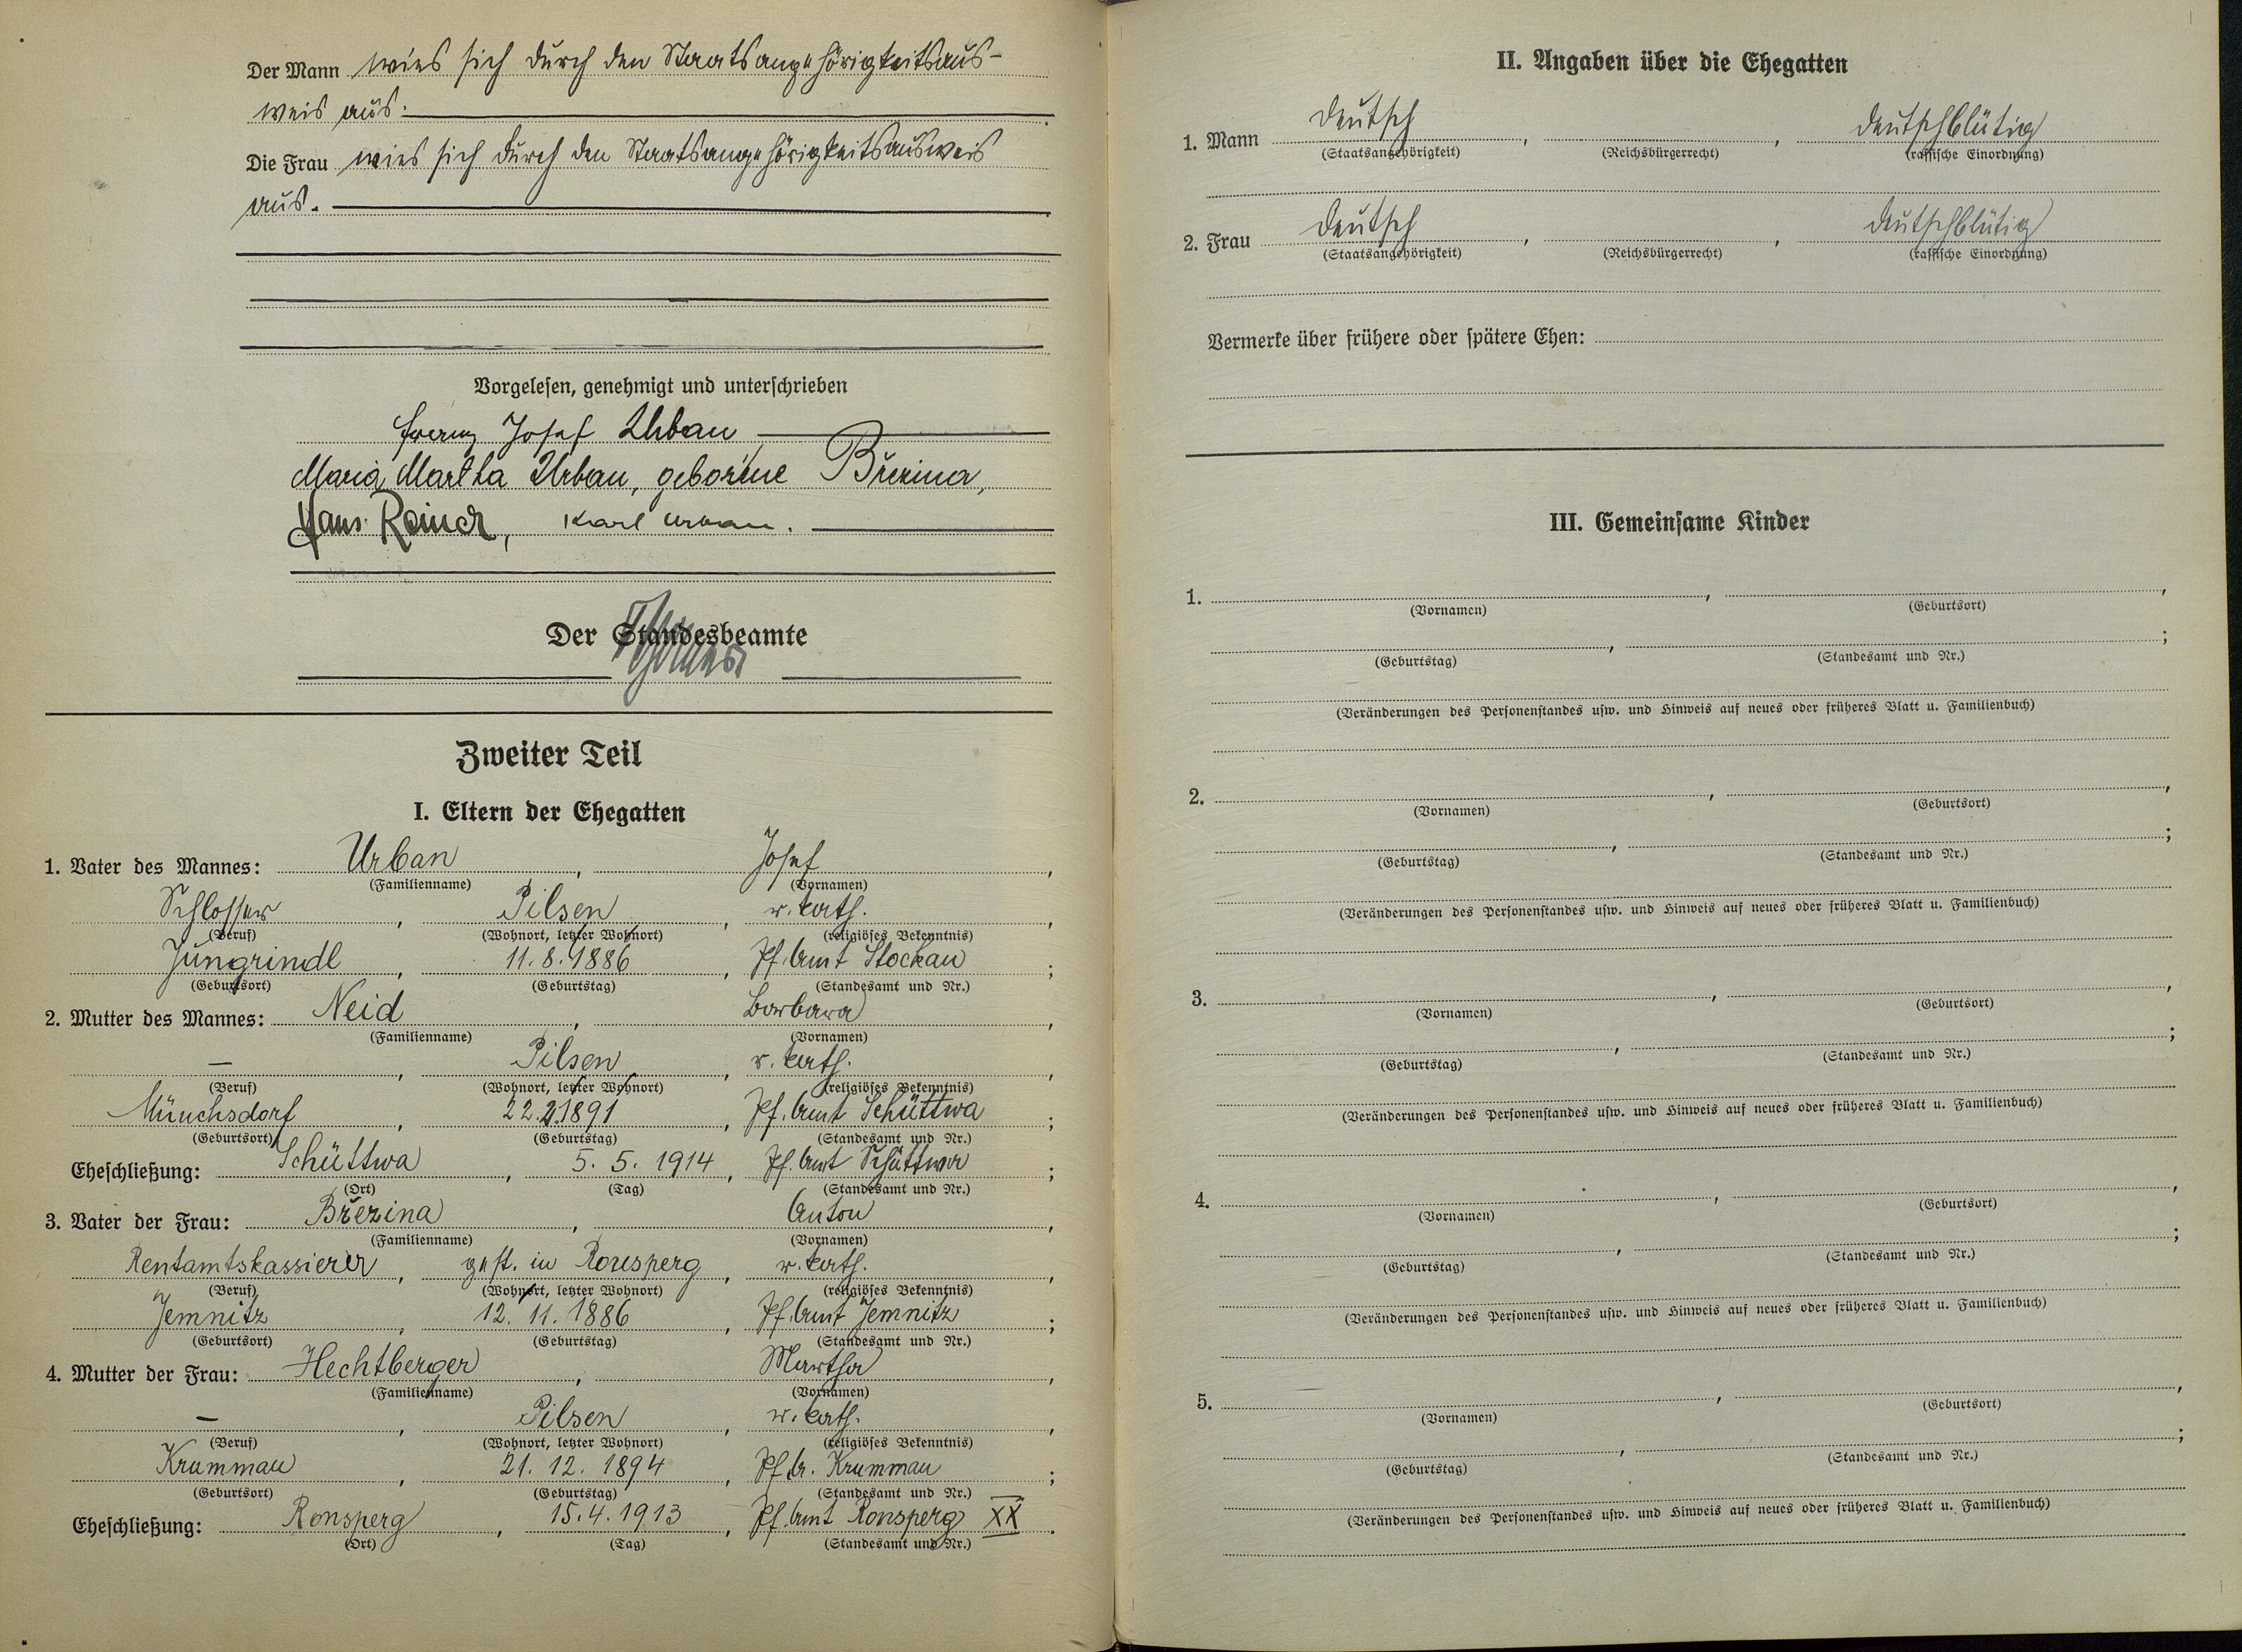 Der Mann wies sich durch den Staatsangehörigkeitsaus-
weis aus.
Die Frau wies sich durch den Staatsangehörigkeitsausweis
aus.
Vorgelesen, genehmigt und unterschrieben
Franz Josef Urban
Maria Martha Urban, geborene Březina,
Hans Reiner, Karl Urban.
Der Standesbeamte
Zweiter Teil
I. Eltern der Ehegatten
1. Vater des Mannes: Urban, Josef,
(Familienname) (Vornamen)
Schlosser, Pilsen, r. kath.,
(Beruf) (Wohnort, letzter Wohnort) (religiöses Bekenntnis)
Jungrindl, 11.8.1886, Pf. Amt Stockau;
(Geburtsort) (Geburtstag) (Standesamt und Nr.)
2. Mutter des Mannes: Neid, Barbara,
(Familienname) (Vornamen)
—, Pilsen, r. kath.,
(Beruf) (Wohnort, letzter Wohnort) (religiöses Bekenntnis)
Münchsdorf, 22.2.1891, Pf. Amt Schüttwa;
(Geburtsort) (Geburtstag) (Standesamt und Nr.)
Eheschließung: Schüttwa, 5. 5. 1914, Pf. Amt Schüttwa;
(Ort) (Tag) (Standesamt und Nr.)
3. Vater der Frau: Březina, Anton,
(Familienname) (Vornamen)
Rentamtskassierer, gest. in Ronsperg, r. kath.,
(Beruf) (Wohnort, letzter Wohnort) (religiöses Bekenntnis)
Jemnitz, 12. 11. 1886, Pf. Amt Jemnitz;
(Geburtsort) (Geburtstag) (Standesamt und Nr.)
4. Mutter der Frau: Hechtberger, Martha,
(Familienname) (Vornamen)
—, Pilsen, r. kath.,
(Beruf) (Wohnort, letzter Wohnort) (religiöses Bekenntnis)
Krummau, 21. 12. 1894, Pf. A. Krummau;
(Geburtsort) (Geburtstag) (Standesamt und Nr.)
Eheschließung: Ronsperg, 15.4.1913, Pf. Amt Ronsperg XX.
(Ort) (Tag) (Standesamt und Nr.)
II. Angaben über die Ehegatten
1. Mann deutsch, , deutschblütig
(Staatsangehörigkeit) (Reichsbürgerrecht) (rassische Einordnung)
2. Frau deutsch, , deutschblütig
(Staatsangehörigkeit) (Reichsbürgerrecht) (rassische Einordnung)
Vermerke über frühere oder spätere Ehen:
III. Gemeinsame Kinder
1. , ,
(Vornamen) (Geburtsort)
, ;
(Geburtstag) (Standesamt und Nr.)
(Veränderungen des Personenstandes usw. und Hinweis auf neues oder früheres Blatt u. Familienbuch)
2. , ,
(Vornamen) (Geburtsort)
, ;
(Geburtstag) (Standesamt und Nr.)
(Veränderungen des Personenstandes usw. und Hinweis auf neues oder früheres Blatt u. Familienbuch)
3. , ,
(Vornamen) (Geburtsort)
, ;
(Geburtstag) (Standesamt und Nr.)
(Veränderungen des Personenstandes usw. und Hinweis auf neues oder früheres Blatt u. Familienbuch)
4. , ,
(Vornamen) (Geburtsort)
, ;
(Geburtstag) (Standesamt und Nr.)
(Veränderungen des Personenstandes usw. und Hinweis auf neues oder früheres Blatt u. Familienbuch)
5. , ,
(Vornamen) (Geburtsort)
, ;
(Geburtstag) (Standesamt und Nr.)
(Veränderungen des Personenstandes usw. und Hinweis auf neues oder früheres Blatt u. Familienbuch)